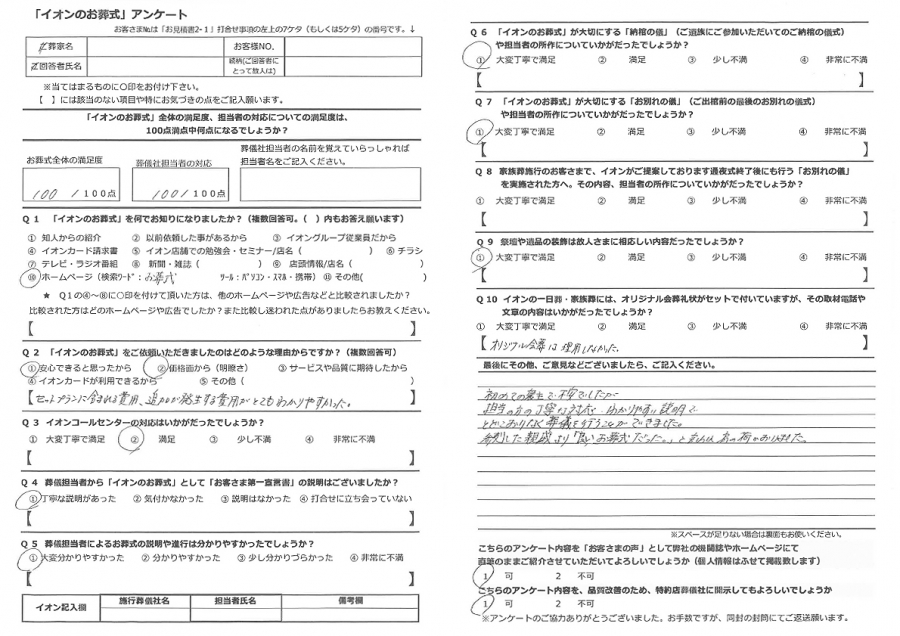 「イオンのお葬式」アンケート
お客さま№は「お見積書2-1」打合せ事項の左上の7ケタ(もしくは5ケタ)の番号です。↓
ご葬家名
お客様NO.
ご回答者氏名
続柄(ご回答者にとって故人は)
※当てはまるものに○印をお付け下さい。
【 】には該当のない項目や特にお気づきの点をご記入願います。
「イオンのお葬式」全体の満足度、担当者の対応についての満足度は、
100点満点中何点になるでしょうか?
お葬式全体の満足度
100 /100点
葬儀社担当者の対応
100 /100点
葬儀社担当者の名前を覚えていらっしゃれば
担当者名をご記入ください。
Q1 「イオンのお葬式」を何でお知りになりましたか?(複数回答可。( )内もお答え願います)
① 知人からの紹介 ② 以前依頼した事があるから ③ イオングループ従業員だから
④ イオンカード請求書 ⑤ イオン店舗での勉強会・セミナー/店名( ) ⑥ チラシ
⑦ テレビ・ラジオ番組 ⑧ 新聞・雑誌( ) ⑥ 店頭情報/店名( )
⑩ ホームページ(検索ワード:お葬式 ツール:パソコン・スマホ・携帯) ⑪ その他( )
★ Q1の④~⑩に○印を付けて頂いた方は、他のホームページや広告などと比較されましたか?
比較された方はどのホームページや広告でしたか?また比較し迷われた点がありましたらお教えください。
【 】
Q2 「イオンのお葬式」をご依頼いただきましたのはどのような理由からですか?(複数回答可)
① 安心できると思ったから ② 価格面から(明瞭さ) ③ サービスや品質に期待したから
④ イオンカードが利用できるから ⑤ その他( )
【セットプランに含まれる費用、追加が発生する費用がとてもわかりやすかった。】
Q3 イオンコールセンターの対応はいかがだったでしょうか?
① 大変丁寧で満足 ② 満足 ③ 少し不満 ④ 非常に不満
【 】
Q4 葬儀担当者から「イオンのお葬式」として「お客さま第一宣言書」の説明はございましたか?
① 丁寧な説明があった ② 気付かなかった ③ 説明はなかった ④ 打合せに立ち会っていない
【 】
Q5 葬儀担当者によるお葬式の説明や進行は分かりやすかったでしょうか?
① 大変分かりやすかった ② 分かりやすかった ③ 少し分かりづらかった ④ 非常に不満
【 】
イオン記入欄
施行葬儀社名
担当者氏名
備考欄
Q6 「イオンのお葬式」が大切にする「納棺の儀」(ご遺族にご参加いただいてのご納棺の儀式)
や担当者の所作についていかがだったでしょうか?
① 大変丁寧で満足 ② 満足 ③ 少し不満 ④ 非常に不満
【 】
Q7 「イオンのお葬式」が大切にする「お別れの儀」(ご出棺前の最後のお別れの儀式)
や担当者の所作について、いかがだったでしょうか?
① 大変丁寧で満足 ② 満足 ③ 少し不満 ④ 非常に不満
【 】
Q8 家族葬施行のお客さまで、イオンがご提案しております通夜式終了後にも行う「お別れの儀」
を実施された方へ。その内容、担当者の所作についていかがだったでしょうか?
① 大変丁寧で満足 ② 満足 ③ 少し不満 ④ 非常に不満
【 】
Q9 祭壇や遺品の装飾は故人さまに相応しい内容だったでしょうか?
① 大変丁寧で満足 ② 満足 ③ 少し不満 ④ 非常に不満
【 】
Q10 イオンの一日葬・家族葬には、オリジナル会葬礼状がセットで付いていますが、その取材電話や
文章の内容はいかがだったでしょうか?
① 大変丁寧で満足 ② 満足 ③ 少し不満 ④ 非常に不満
【オリジナル会葬は使用しなかった。】
最後にその他、ご意見などございましたら、ご記入ください。
初めての喪主で不安でしたが
担当の方の丁寧な対応と、わかりやすい説明で
とどこおりなく葬儀を行うことができました。
参列した親戚より「良いお葬式だった。」と
※スペースが足りない場合は裏面もお使いください。
こちらのアンケート内容を「お客さまの声」として弊社の機関誌やホームページにて
直筆のままご紹介させていただいてよろしいでしょうか(個人情報はふせて掲載致します)
1 可 2 不可
こちらのアンケート内容を、品質改善のため、特約店葬儀社に開示してもよろしいでしょうか
1 可 2 不可
※アンケートのご協力ありがとうございました。お手数ですが、同封の封筒にてご返送願います。